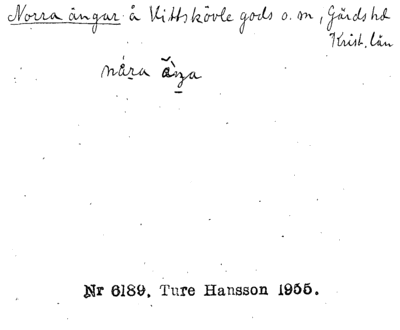 Norra ängar å Vittskövle gods o. m, Gärds hd
Krist. län
Nr 6189. Ture Hansson 1955.